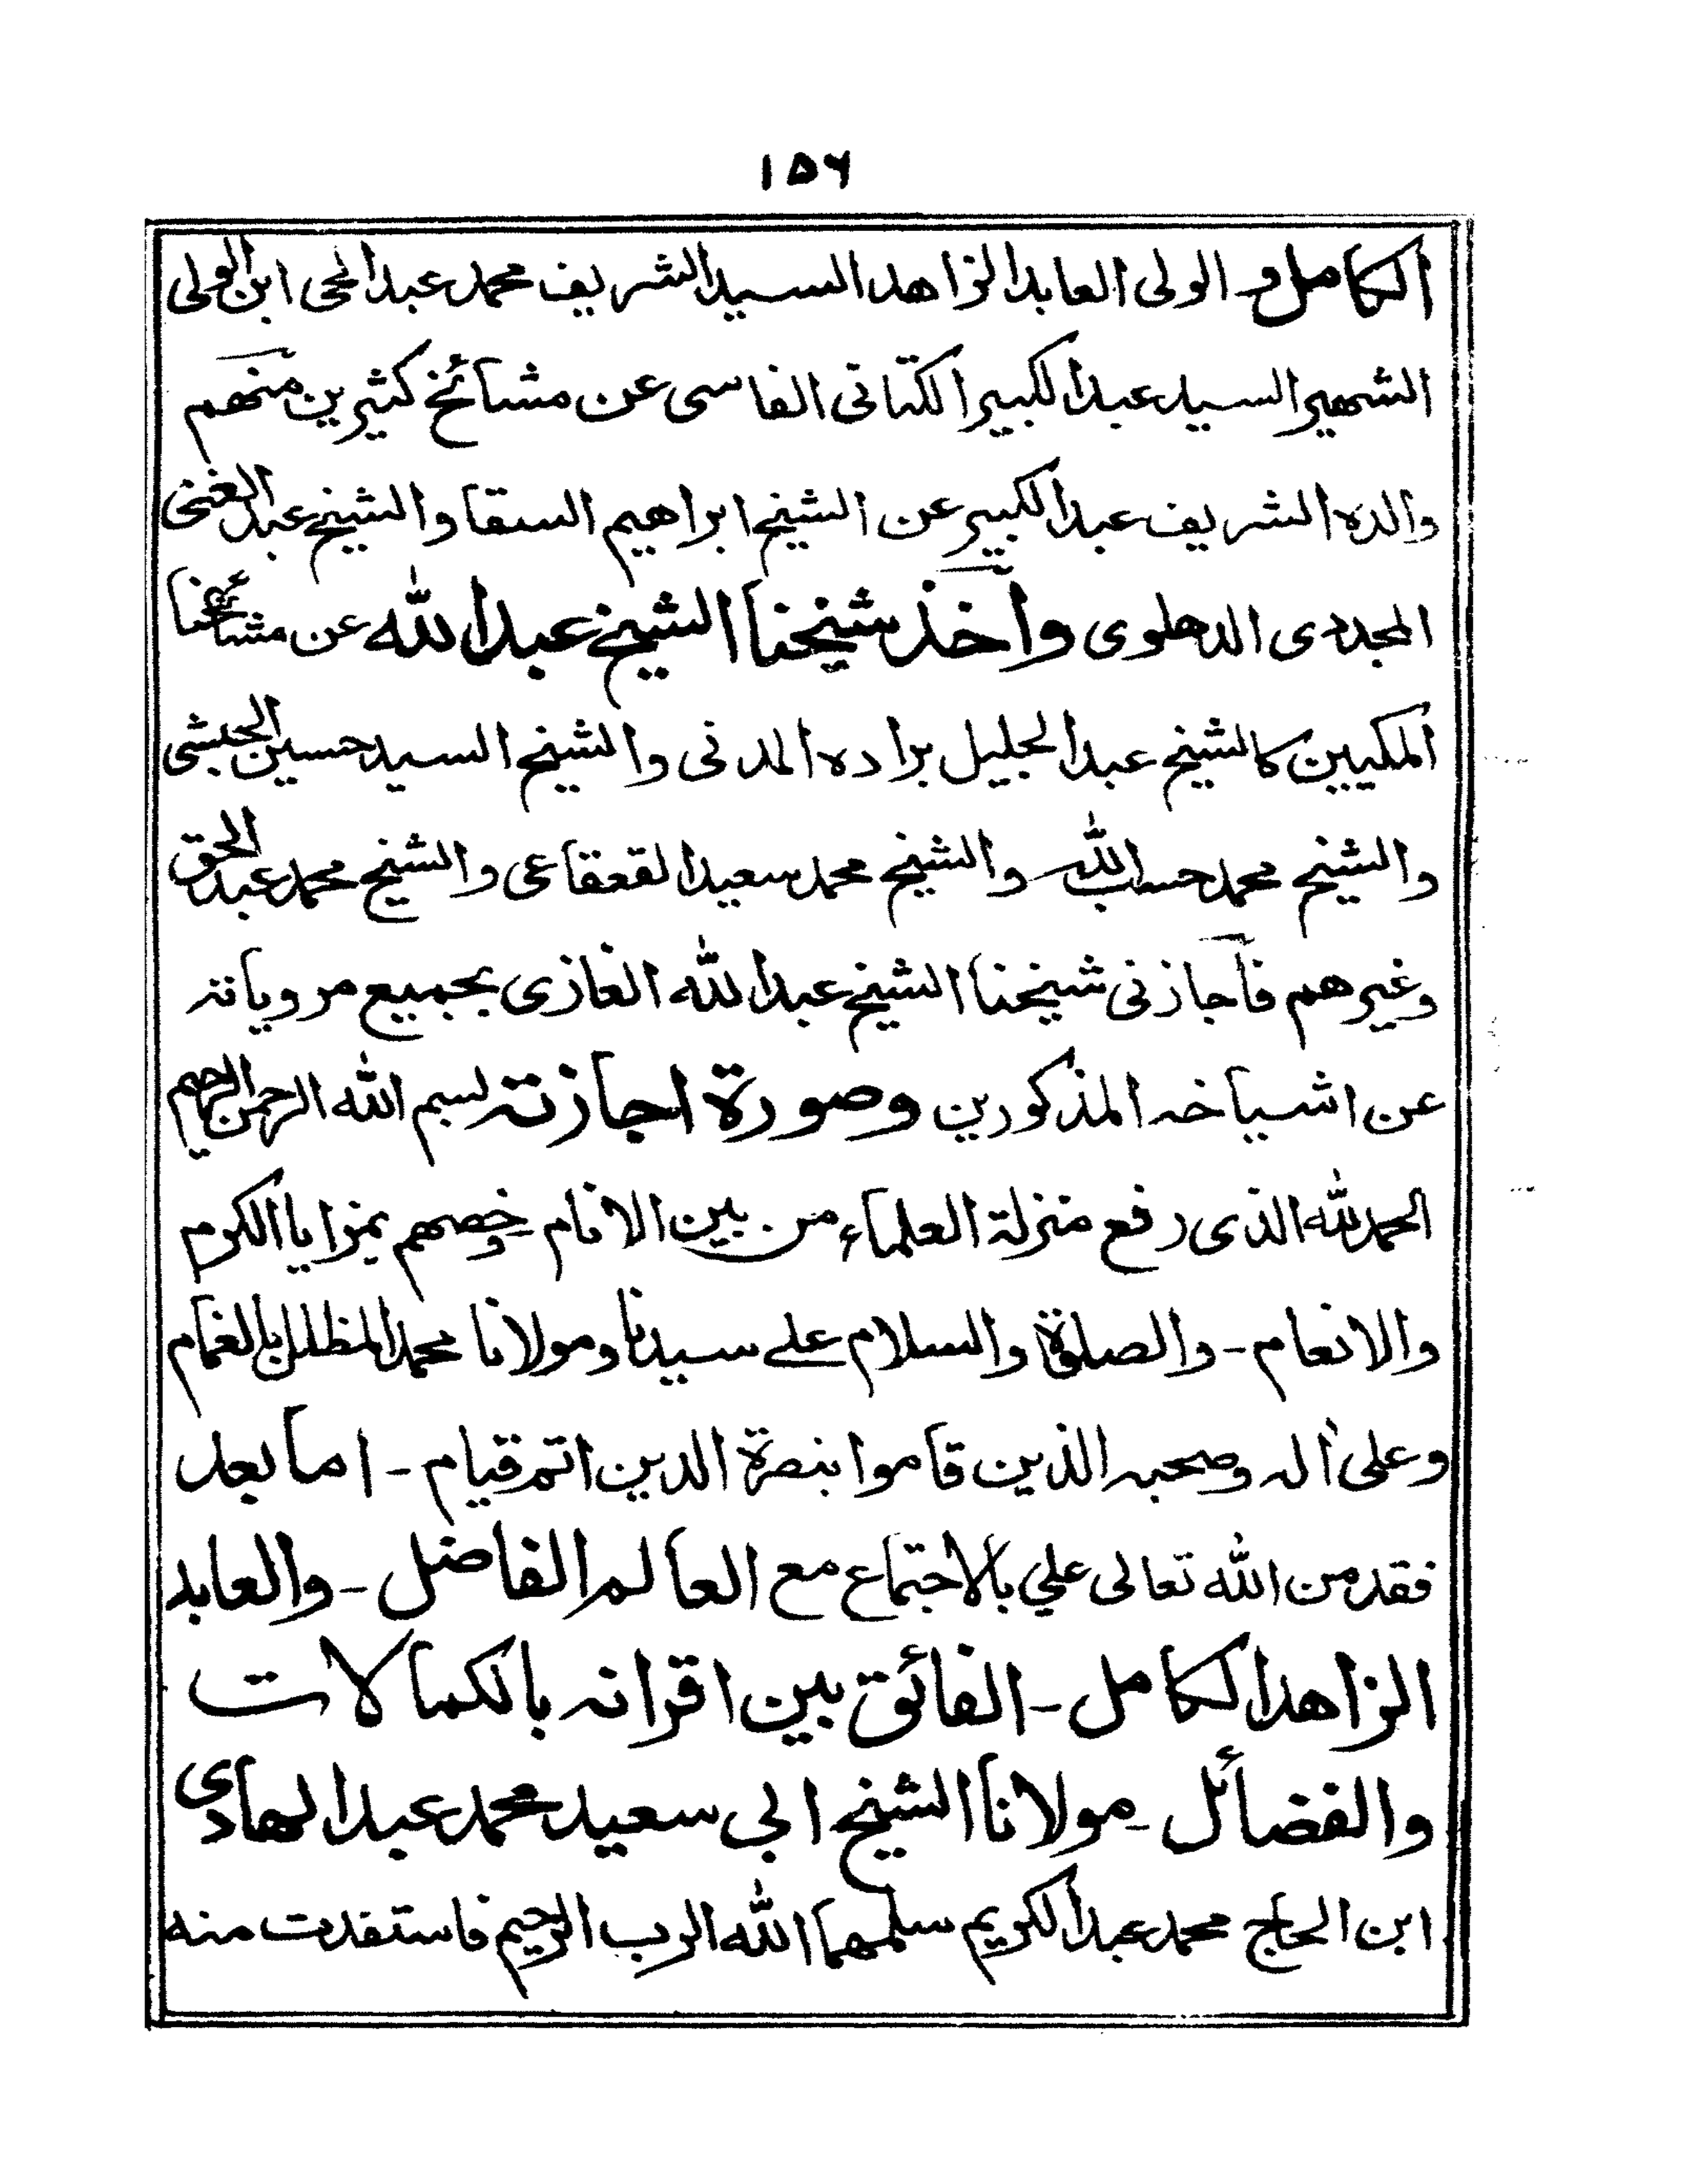 ١٥٦
الكامل و الولی العابد الزاهد السید الشریف محمد عبد الحی ابن الولی
الشهیر السید عبد الکبیر الکتانی الفاسی عن مشائخ کثیرین منهم
والده الشریف عبد الکبیر عن الشیخ ابراهیم السقا والشیخ عبد الغنی
المجددی الدهلوی وأخذ شیخنا الشیخ عبد الله عن مشائخنا
المکیین کالشیخ عبد الجلیل براده المدنی والشیخ السید حسین الحبشی
والشیخ محمد حسب الله والشیخ محمد سعید القعقاعی والشیخ محمد عبد الحق
وغیرهم فأجازنی شیخنا الشیخ عبد الله الغازی بجمیع مرویاته
عن اشیاخه المذکورین وصورة اجازته بسم الله الرحمن الرحیم
الحمد لله الذی رفع منزلة العلماء من بین الانام وخصهم بمزایا الکرم
والانعام - والصلوة والسلام علے سیدنا ومولانا محمد المظلل بالغمام
وعلی أله وصحبه الذین قاموا بنصرة الدین اتم قیام - اما بعد
فقد من الله تعالی علي بالاجتماع مع العالم الفاضل - والعابد
الزاهد الکامل - الفائق بین اقرانه بالکمالات
والفضائل - مولانا الشیخ ابی سعید محمد عبد الهادی
ابن الحاج محمد عبد الکریم سلمهما الله الرب الرحیم فاستفدت منه